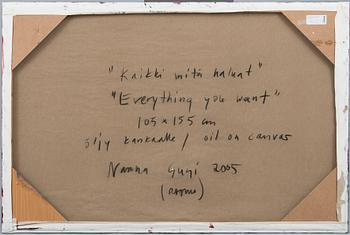 "Kaikki mitä haluat"
"Everything you want"
105 x 155 cm
öljy kankaalle / oil on canvas
Nanna Susi 2005